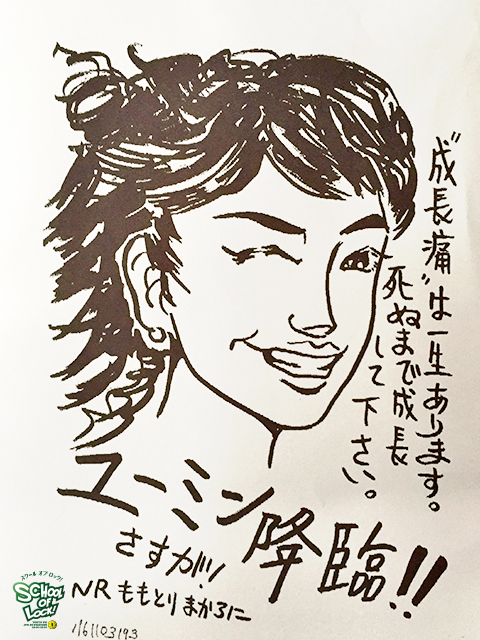 “成長痛”は一生あります。
死ぬまで成長
して下さい。
ユーミン降臨!!
さすが!!
NR ももとりまかろに
スクール オブ ロック!
SCHOOL
OF
LOCK!